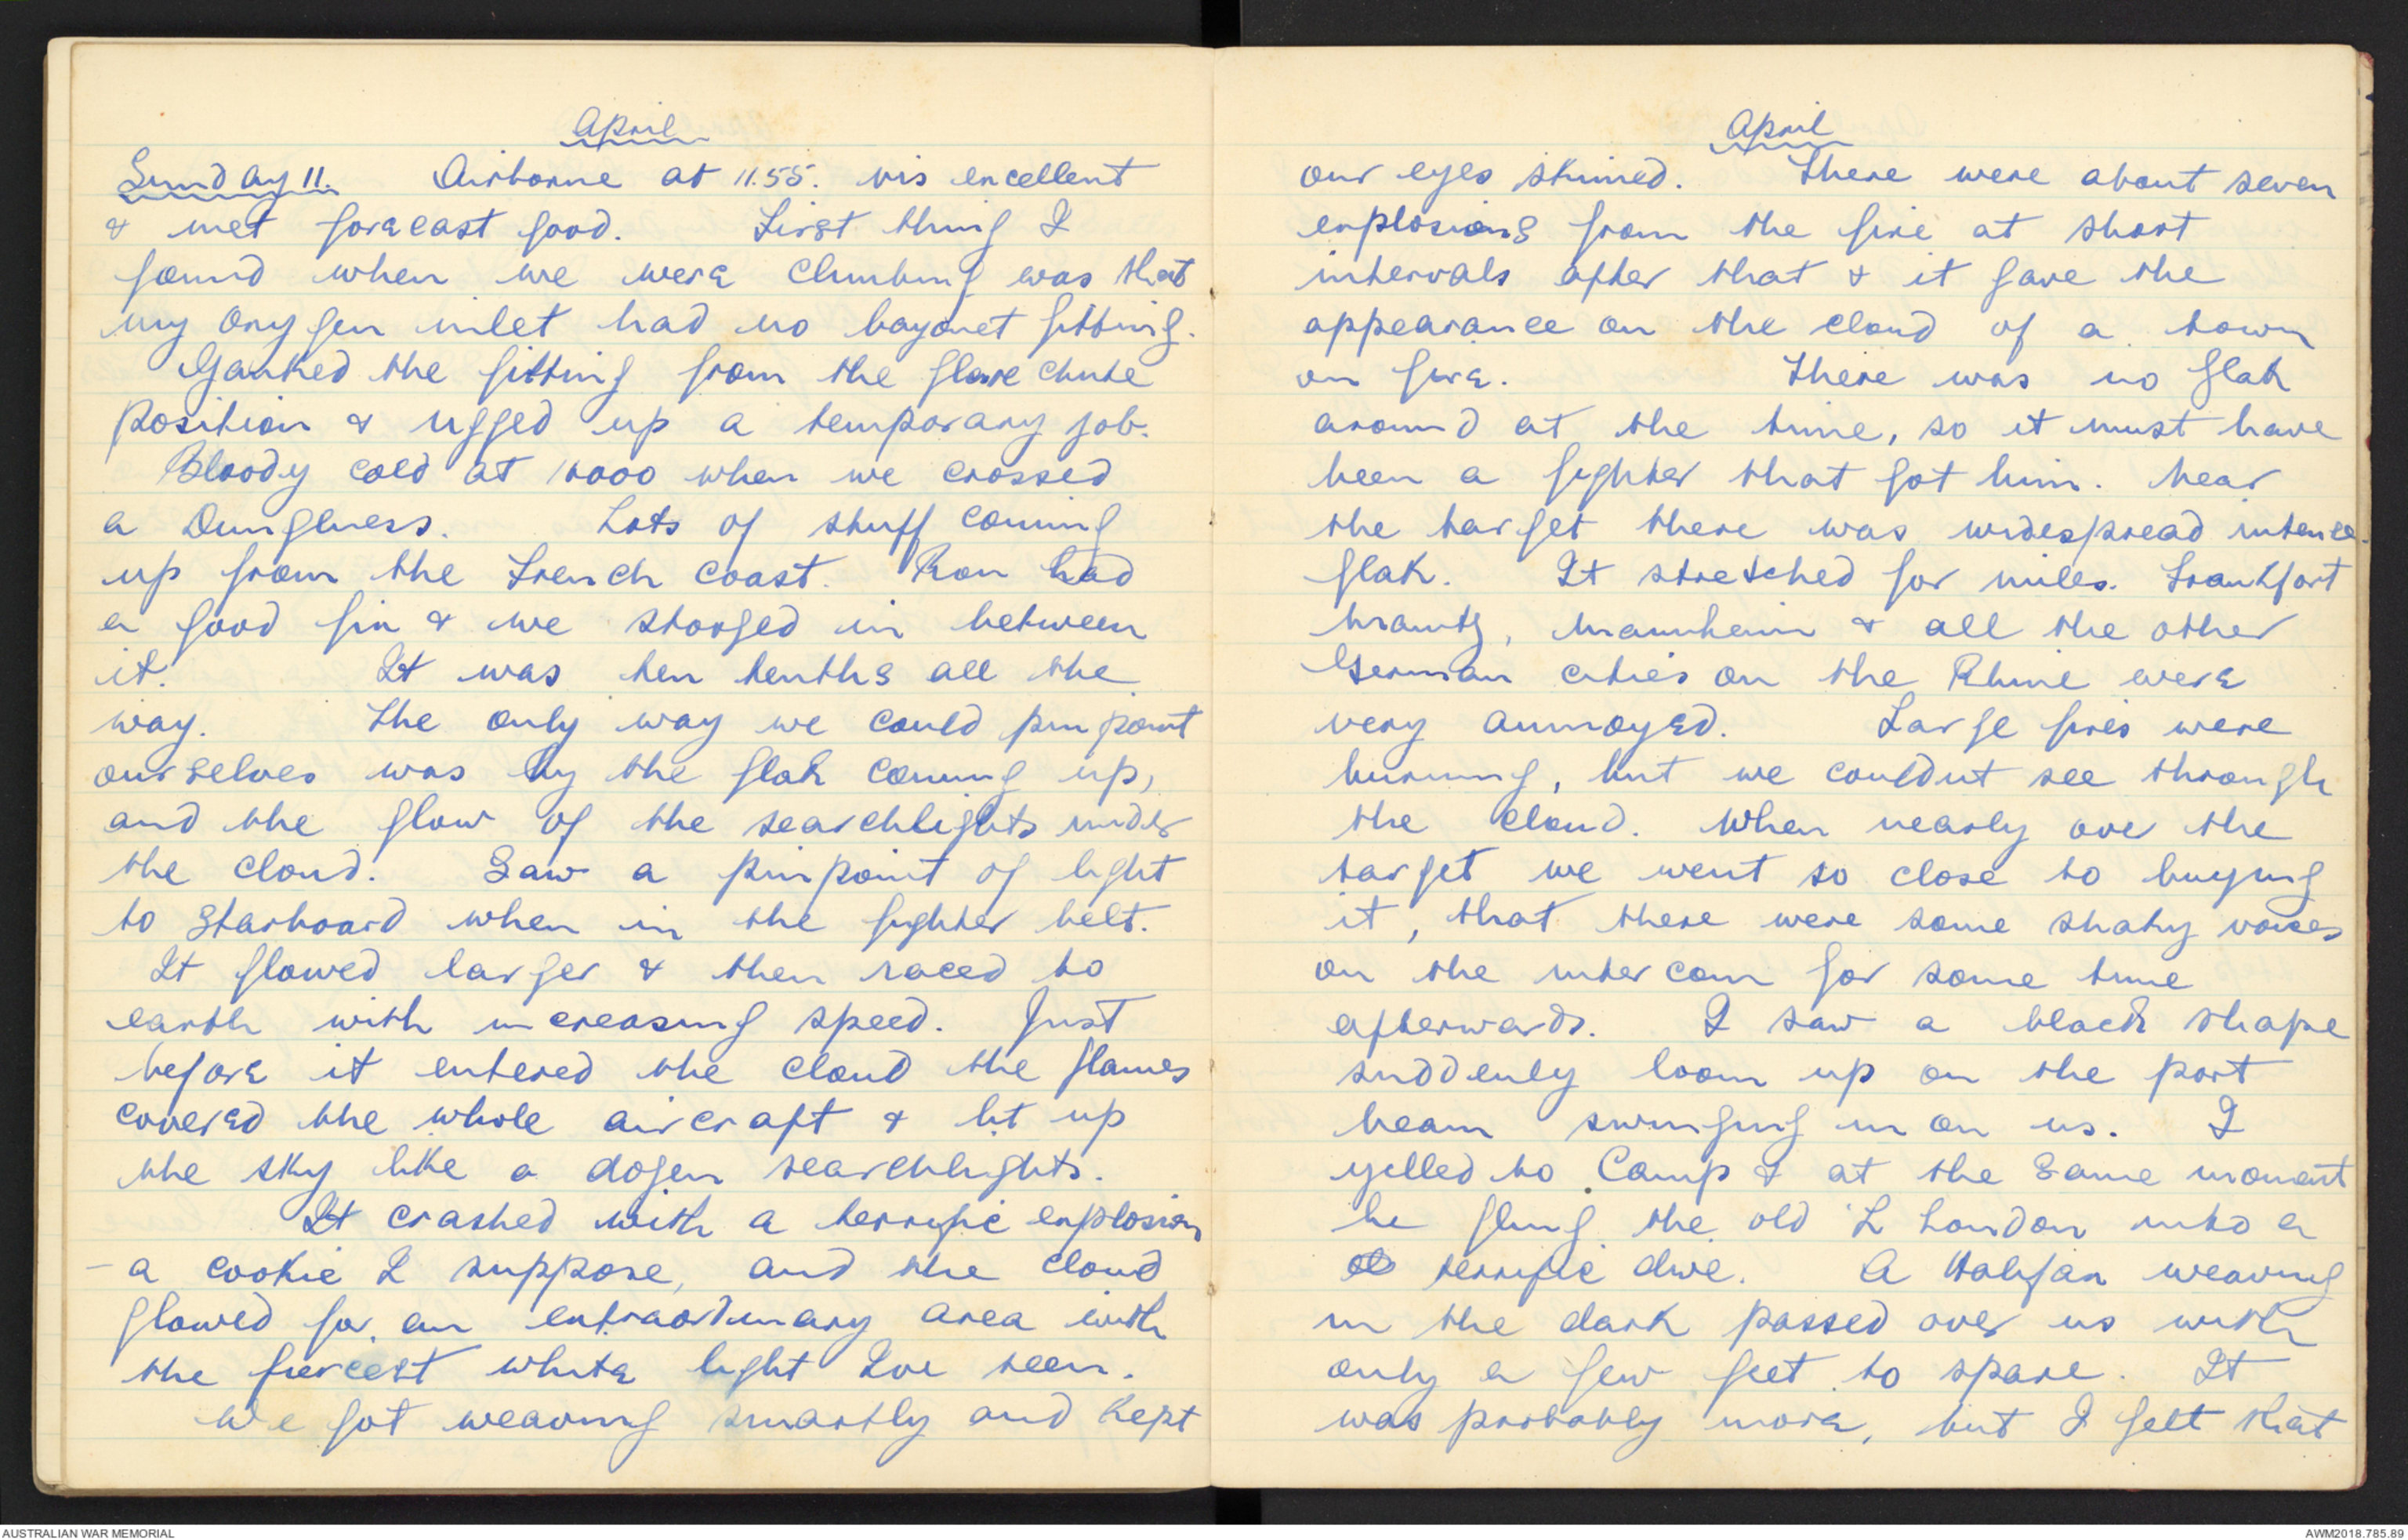 April
Sunday 11. Airborne at 11.55. vis excellent
& met forecast good. First thing I
found when we were climbing was that
my oxygen inlet had no bayonet fitting.
Yanked the fitting from the flare chute
position & rigged up a temporary job.
Bloody cold at 16000 when we crossed
a Dungeness. Lots of stuff coming
up from the French coast. Ron had
a good fix & we stooged in between
it. It was ten tenths all the
way. The only way we could pin point
ourselves was by the flak coming up,
and the glow of the searchlights under
the cloud. Saw a pinpoint of light
to starboard when in the fighter belt.
It glowed larger & then raced to
earth with increasing speed. Just
before it entered the cloud the flames
covered the whole aircraft & lit up
the sky like a dozen searchlights.
It crashed with a terrific explosion
- a cookie I suppose, and the cloud
glowed for an extraordinary area with
the fiercest white light Ive seen.
We got weaving smartly and kept
April
our eyes skinned. There were about seven
explosions from the fire at short
intervals after that & it gave the
appearance on the cloud of a town
on fire. There was no flak
around at the time, so it must have
been a fighter that got him. Near
the target there was widespread intense
flak. It stretched for miles. Frankfort
Mantz, Mannheim & all the other
German cities on the Rhine were
very annoyed. Large fires were
burning, but we couldnt see through
the cloud. When nearly over the
target we went so close to buying
it, that there were some shaky voices
on the intercom for some time
afterwards. I saw a black shape
suddenly loom up on the port
beam swinging in on us. I
yelled to Camp & at the same moment
he flung the old L London into a
terrific dive. A Halifax weaving
in the dark passed over us with
only a few feet to spare. It
was probably more, but I felt that
AUSTRALIAN WAR MEMORIAL
AWM2018.785.89